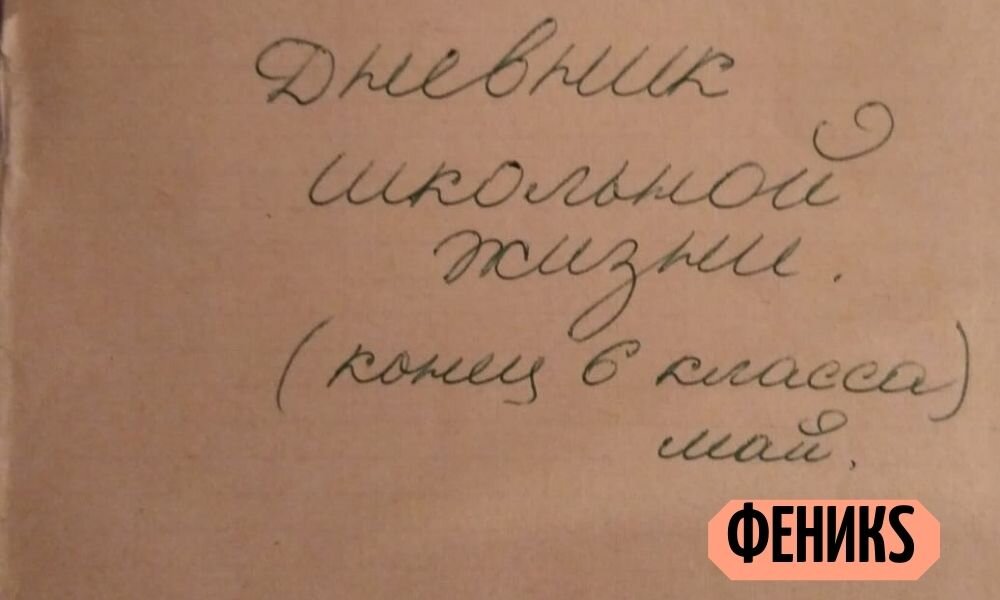 Дневник
школьной
жизни.
(конец 6 класса)
май.
ФЕНИКS